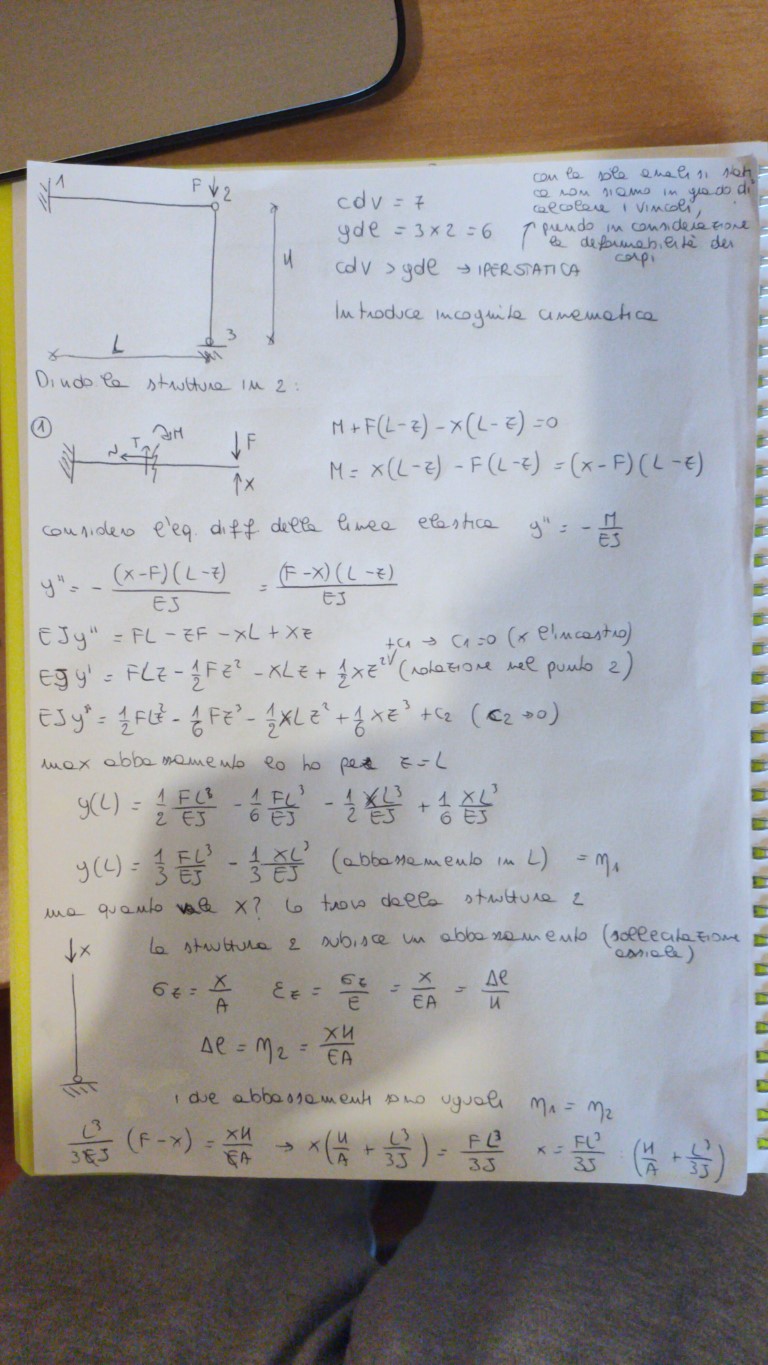 1
F
2
H
L
3
cdv = 7
gdl = 3×2 = 6
cdv > gdl → IPERSTATICA
con la sola analisi stati
ca non siamo in grado di
calcolare i vincoli,
↑ prendo in considerazione
la deformabilità dei
corpi
Introduce incognita cinematica
Divido la struttura in 2:
1
N T M F
x
M + F(L-z) - x(L-z) = 0
M = x(L-z) - F(L-z) = (x-F)(L-z)
considero l'eq. diff della linea elastica y'' = - M/EJ
y'' = - (x-F)(L-z)/EJ = (F-x)(L-z)/EJ
EJy'' = FL - zF - xL + xz
+c1 → c1=0 (x l'incastro)
EJy' = FLz - 1/2 Fz² - xLz + 1/2 xz² (rotazione nel punto 2)
EJy = 1/2 FLz² - 1/6 Fz³ - 1/2 xLz² + 1/6 xz³ + c2 (c2→0)
max abbassamento lo ho per z = L
y(L) = 1/2 FL³/EJ - 1/6 FL³/EJ - 1/2 xL³/EJ + 1/6 xL³/EJ
y(L) = 1/3 FL³/EJ - 1/3 xL³/EJ (abbassamento in L) = η1
ma quanto vale x? lo trovo dalla struttura 2
↓x
la struttura 2 subisce un abbassamento (sollecitazione
assiale)
σz = x/A εz = σz/E = x/EA = Δl/H
Δl = η2 = xH/EA
i due abbassamenti sono uguali η1 = η2
L³/3EJ (F-x) = xH/EA → x(H/A + L³/3J) = FL³/3J x = FL³/3J : (H/A + L³/3J)